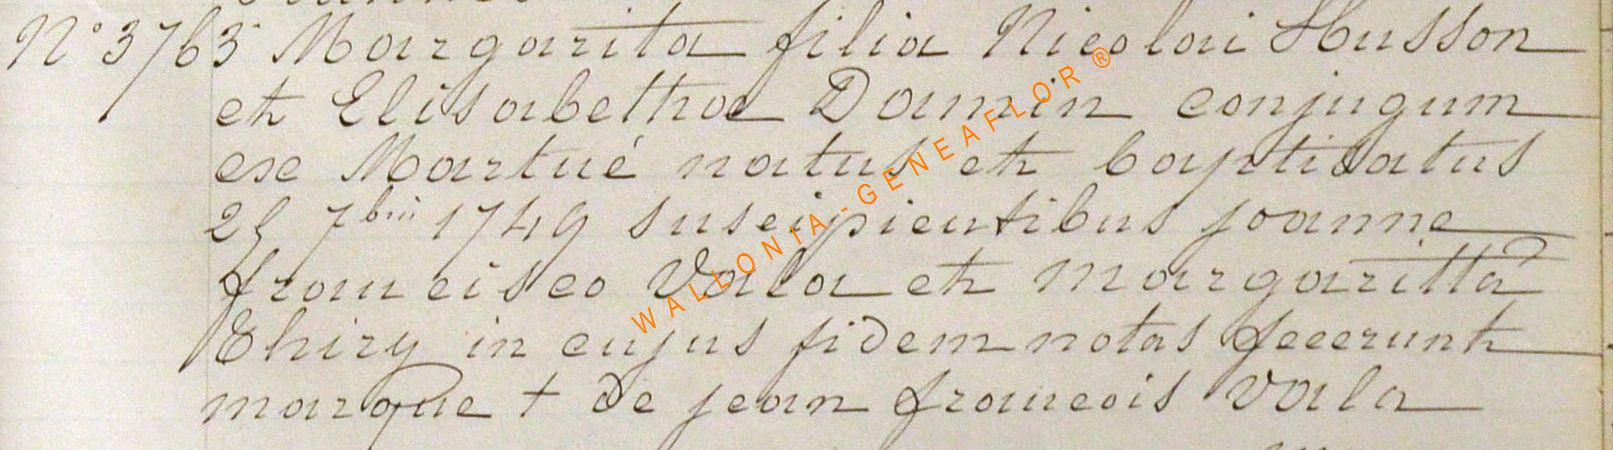 N° 3763 Margarita filia Nicolai Husson
et Elisabetha Damin conjugum
ex Martué natus et baptisatus
25 7bris 1749 suscipientibus joanne
francisco Vala et margaritta
Thiry in cujus fidem notas fecerunt
marque + de jean francois Vala
WALLONIA-GENEAFLOR ®